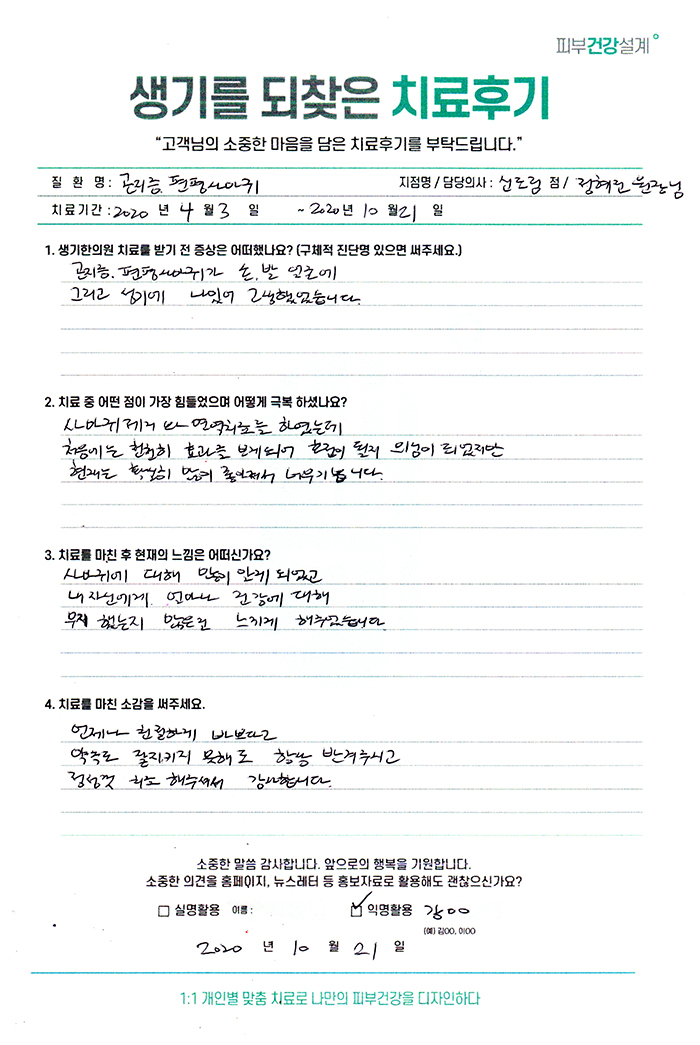 피부건강설계
생기를 되찾은 치료후기
“고객님의 소중한 마음을 담은 치료후기를 부탁드립니다.”
질 환 명: 곤지름, 편평사마귀 지점명 / 담당의사 : 신도림 점 / 원장님
치료기간 : 2020 년 4 월 3 일 ~ 2020년 10 월 21 일
1. 생기한의원 치료를 받기 전 증상은 어떠했나요? (구체적 진단명 있으면 써주세요.)
곤지름, 편평사마귀가 손, 발 얼굴에
그리고 성기에 나있어 고생했었습니다.
2. 치료 중 어떤 점이 가장 힘들었으며 어떻게 극복 하셨나요?
사마귀 제거 와 면역치료를 하였는데
처음에는 천천히 효과를 보게되어 호전이 될지 의심이 되었지만
현재는 확실히 많이 좋아져서 너무기쁩니다.
3. 치료를 마친 후 현재의 느낌은 어떠신가요?
사마귀에 대해 많이 알게 되었고
내 자신에게 얼마나 건강에 대해
무지 했는지 많은걸 느끼게 해주었습니다.
4. 치료를 마친 소감을 써주세요.
언제나 친절하게 바쁘다고
약속도 잘지키지 못해도 항상 반겨주시고
정성껏 치료 해주셔서 감사합니다.
소중한 말씀 감사합니다. 앞으로의 행복을 기원합니다.
소중한 의견을 홈페이지, 뉴스레터 등 홍보자료로 활용해도 괜찮으신가요?
실명활용 이름 : 익명활용 강OO
(예) 김OO, 이OO
2020 년 10 월 21 일
1:1 개인별 맞춤 치료로 나만의 피부건강을 디자인하다